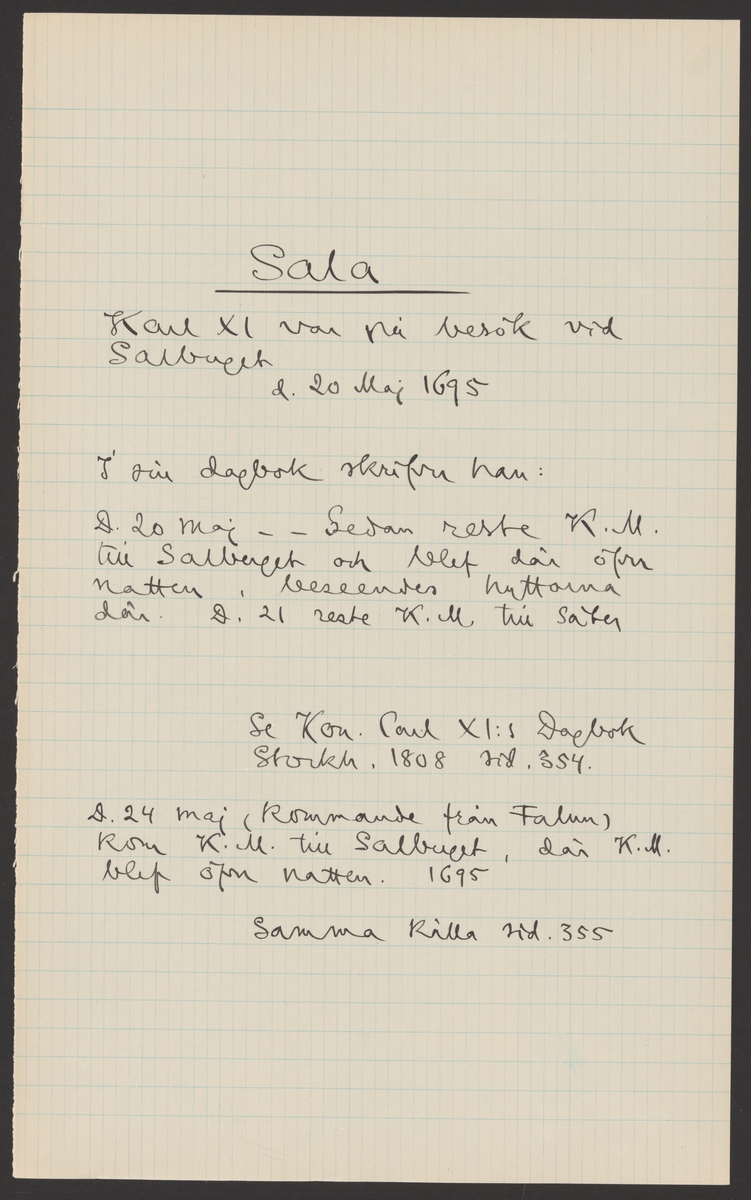 Sala
Karl XI var på besök vid
Salberget
d. 20 Maj 1695
I sin dagbok skrifver han:
D. 20 maj - - Sedan reste K. M.
till Salberget och blef där öfver
natten, beseendes hyttorna
där. D. 21 reste K. M. till Säter
Se Kon. Carl XI:s Dagbok
Stockh. 1808 sid. 354.
D. 24 maj (kommande från Falun)
kom K. M. till Salberget, där K. M.
blef öfver natten. 1695
Samma källa sid. 355